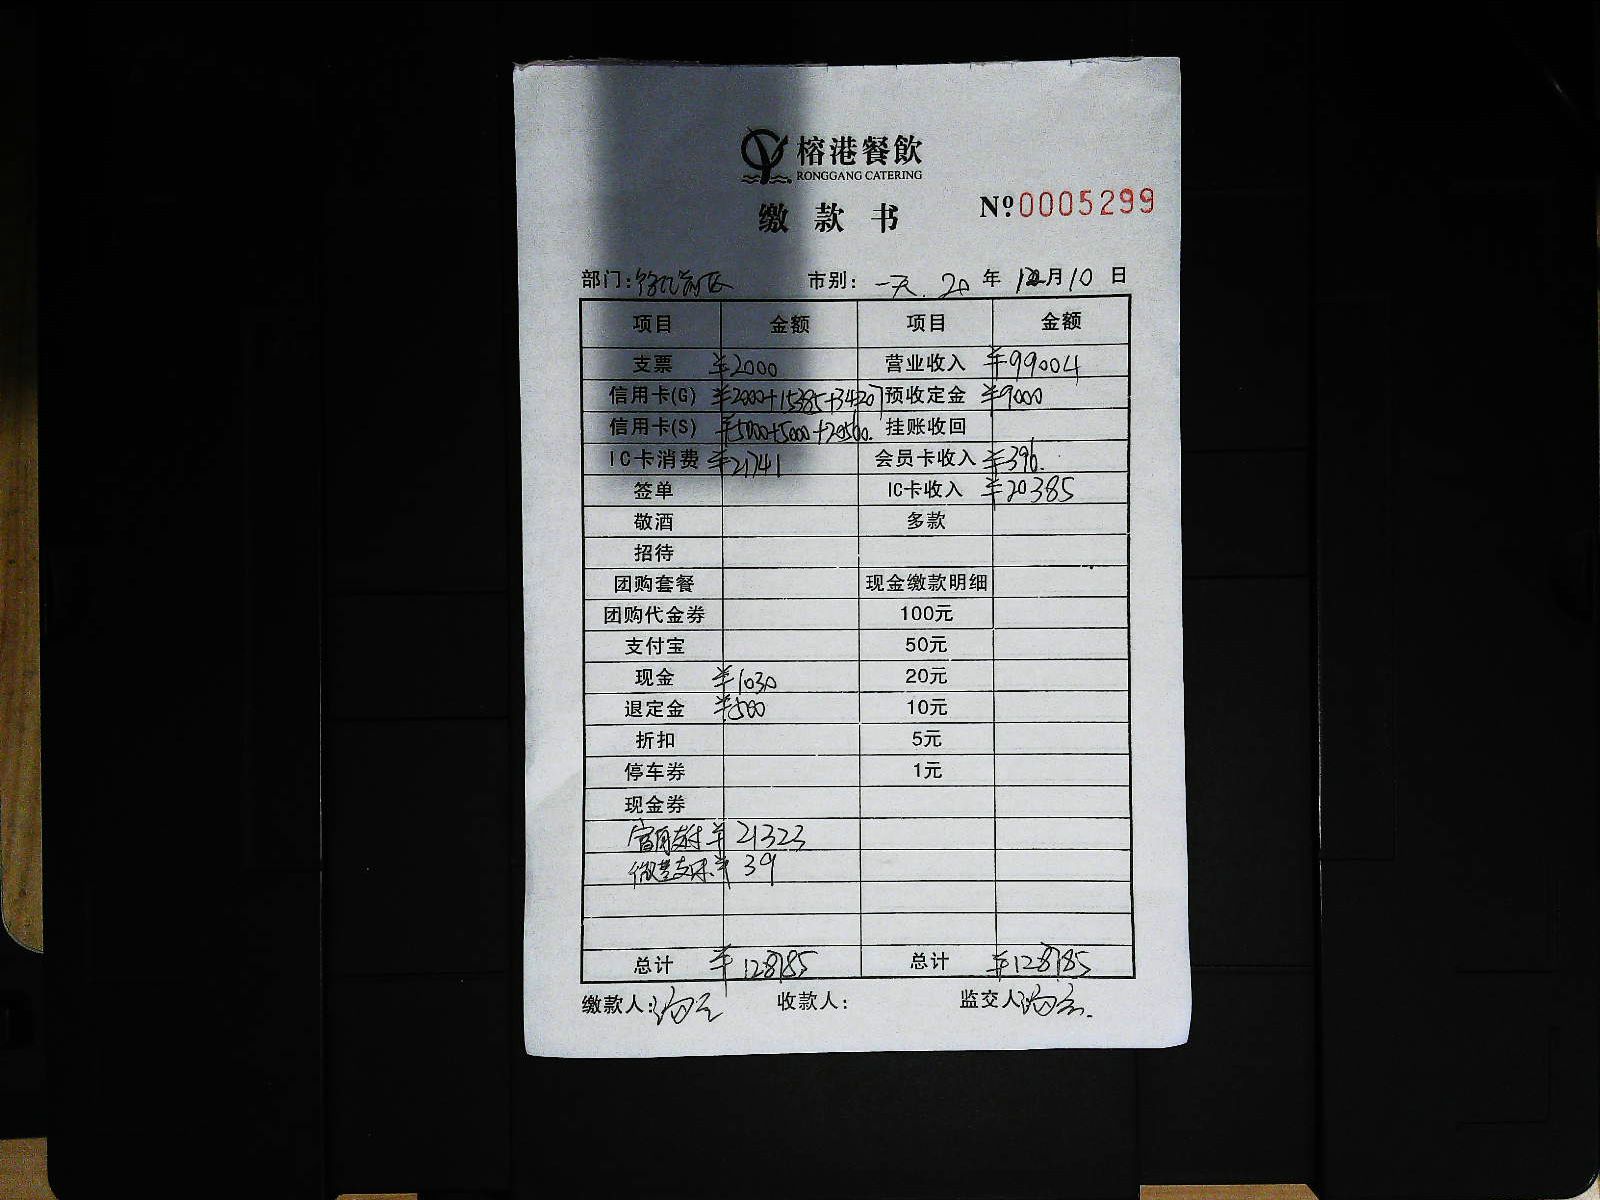 榕港餐飲
RONGGANG CATERING
缴款书 Nº:0005299
部门: 市别:一天. 20年12月10日
项目 金额 项目 金额
支票 ¥2000 营业收入 ¥99004
信用卡(G) ¥2000+15385+34207 预收定金 ¥9000
信用卡(S) ¥5000+5000+20560. 挂账收回
IC卡消费 ¥21741 会员卡收入 ¥396.
签单 IC卡收入 ¥20385
敬酒 多款
招待
团购套餐 现金缴款明细
团购代金券 100元
支付宝 50元
现金 ¥1030 20元
退定金 ¥500 10元
折扣 5元
停车券 1元
现金券
¥21323
¥39
总计 ¥128785 总计 ¥128785
缴款人: 收款人: 监交人